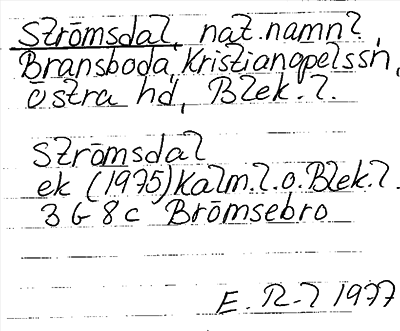 Strömsdal, nat.namn?,
Bransboda, Kristianopelssn,
Östra hd, Blek. l.
Strömsdal
ek (1975) Kalm. l. o. Blek. l.
3 G 8 c Brömsebro
E. R-? 1977